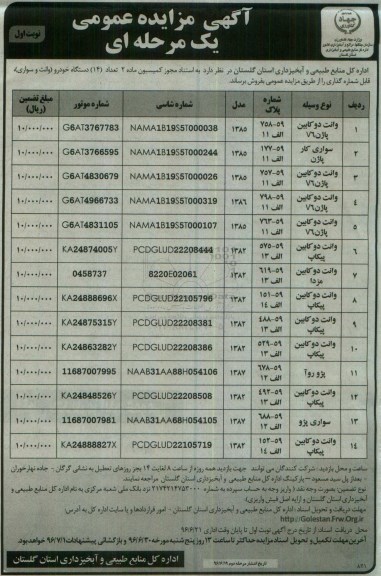 آگهی مزایده عمومی
یک مرحله ای
نوبت اول
اداره کل منابع طبیعی و آبخیزداری استان گلستان در نظر دارد به استناد مجوز کمیسیون ماده ۲ تعداد (۱۴) دستگاه خودرو (وانت و سواری)
قابل شماره گذاری را از طریق مزایده عمومی بفروش برساند.
ردیف نوع وسیله شماره پلاک مدل شماره شاسی شماره موتور مبلغ تضمین (ریال)
۱ وانت دو کابین پاژن ۷۶ ۷۵۸-۵۹ الف ۱۱ ۱۳۸۵ NAMA1B19S5T000038 G6AT3767783 ۱۰/۰۰۰/۰۰۰
۲ سواری کار پاژن ۱۷۷-۵۹ الف ۱۱ ۱۳۸۵ NAMA1B19S5T000244 G6AT3766595 ۱۰/۰۰۰/۰۰۰
۳ وانت دو کابین پاژن ۷۶ ۷۵۷-۵۹ الف ۱۱ ۱۳۸۵ NAMA1B19S5T000026 G6AT4830679 ۱۰/۰۰۰/۰۰۰
۴ وانت دو کابین پاژن ۷۶ ۷۹۸-۵۹ الف ۱۱ ۱۳۸۶ NAMA1B19S5T000319 G6AT4966733 ۱۰/۰۰۰/۰۰۰
۵ وانت دو کابین پاژن ۷۶ ۷۶۳-۵۹ الف ۱۱ ۱۳۸۵ NAMA1B19S5T000107 G6AT4831105 ۱۰/۰۰۰/۰۰۰
۶ وانت دو کابین پیکاپ ۵۷۵-۵۹ الف ۱۳ ۱۳۸۲ PCDGLUD22208444 KA24874005Y ۱۰/۰۰۰/۰۰۰
۷ وانت دو کابین مزدا ۶۱۹-۵۹ الف ۱۳ ۱۳۸۲ 8220E02061 0458737 ۱۰/۰۰۰/۰۰۰
۸ وانت دو کابین پیکاپ ۱۵۱-۵۹ الف ۱۴ ۱۳۸۲ PCDGLUD22105796 KA24888696X ۱۰/۰۰۰/۰۰۰
۹ وانت دو کابین پیکاپ ۴۸۸-۵۹ الف ۱۳ ۱۳۸۲ PCDGLUD22208381 KA24875315Y ۱۰/۰۰۰/۰۰۰
۱۰ وانت دو کابین پیکاپ ۵۲۹-۵۹ الف ۱۳ ۱۳۸۲ PCDGLUD22208386 KA24863282Y ۱۰/۰۰۰/۰۰۰
۱۱ پژو روآ ۶۷۸-۵۹ الف ۱۲ ۱۳۸۷ NAAB31AA88H054106 11687007995 ۱۰/۰۰۰/۰۰۰
۱۲ وانت دو کابین پیکاپ ۴۹۲-۵۹ الف ۱۳ ۱۳۸۲ PCDGLUD22208508 KA24848526Y ۱۰/۰۰۰/۰۰۰
۱۳ سواری پژو ۶۸۸-۵۹ الف ۱۲ ۱۳۸۷ NAAB31AA68H054105 11687007981 ۱۰/۰۰۰/۰۰۰
۱۴ وانت دو کابین پیکاپ ۱۵۲-۵۹ الف ۱۴ ۱۳۸۲ PCDGLUD22105719 KA24888827X ۱۰/۰۰۰/۰۰۰
ساعت و محل بازدید: شرکت کنندگان می توانند جهت بازدید همه روزه از ساعت ۸ لغایت ۱۴ بجز روزهای تعطیل به نشانی گرگان - جاده نهارخوران
- بعد از پل سید مسعود - پارکینگ اداره کل منابع طبیعی و آبخیزداری استان گلستان مراجعه نمایند.
نوع تضمین: بصورت وجه نقد ( واریز وجه به حساب سپرده به شماره ۲۱۷۴۲۱۴۷۵۳۰۰۰ نزد بانک ملی شعبه مرکزی به نام اداره کل منابع طبیعی و
آبخیزداری استان گلستان و ارایه اصل فیش واریزی)
محل دریافت اسناد : اداره کل منابع طبیعی و آبخیزداری استان گلستان - امور قراردادها و یا سایت اداره کل به آدرس:
http://Golestan.Frw.Org.ir
محل دریافت اسناد: از تاریخ درج آگهی نوبت اول تا پایان وقت اداری ۹۶/۶/۲۱
آخرین مهلت تکمیل و تحویل اسناد مزایده حداکثر تا ساعت ۱۳ روز پنج شنبه مورخه ۹۶/۶/۳۰ و بازگشائی پیشنهادات ۹۶/۷/۱ خواهد بود.
اداره کل منابع طبیعی و آبخیزداری استان گلستان